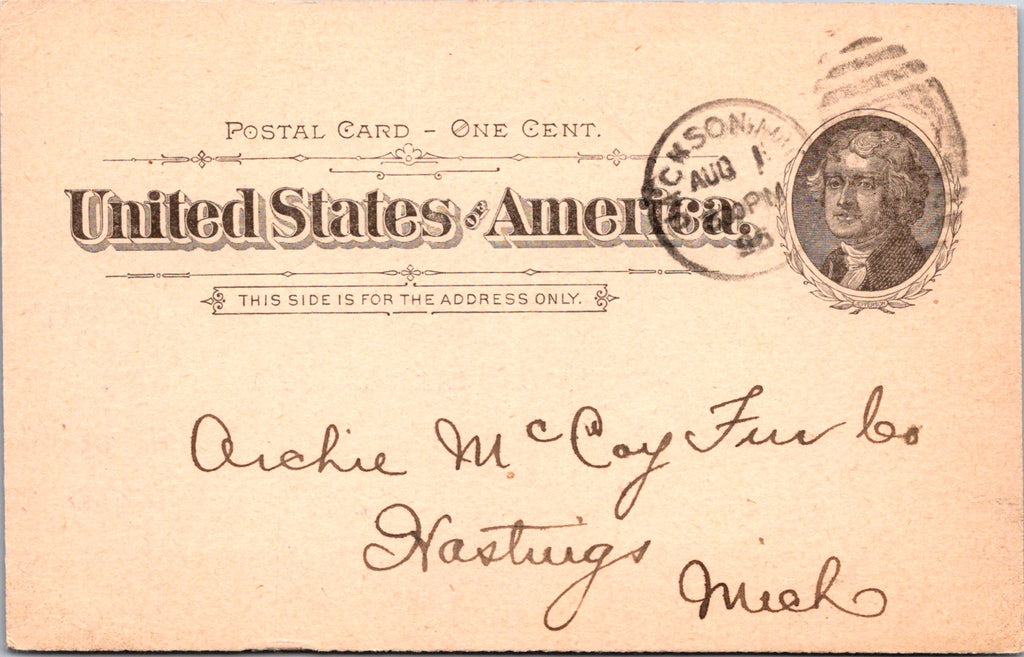 POSTAL CARD - ONE CENT.
United States OF America.
THIS SIDE IS FOR THE ADDRESS ONLY.
JACKSON, MICH
AUG 1
PM
95
Archie McCoy Fur Co
Hastings
Mich